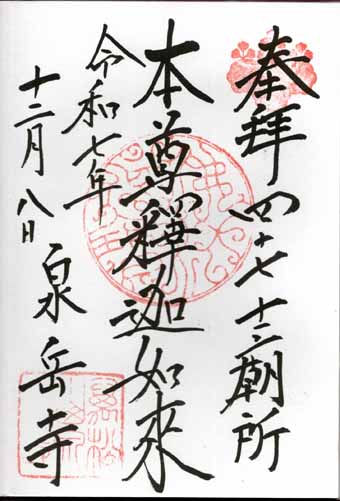 奉拝 四十七士廟所
本尊釋迦如來
令和七年
十二月八日
泉岳寺